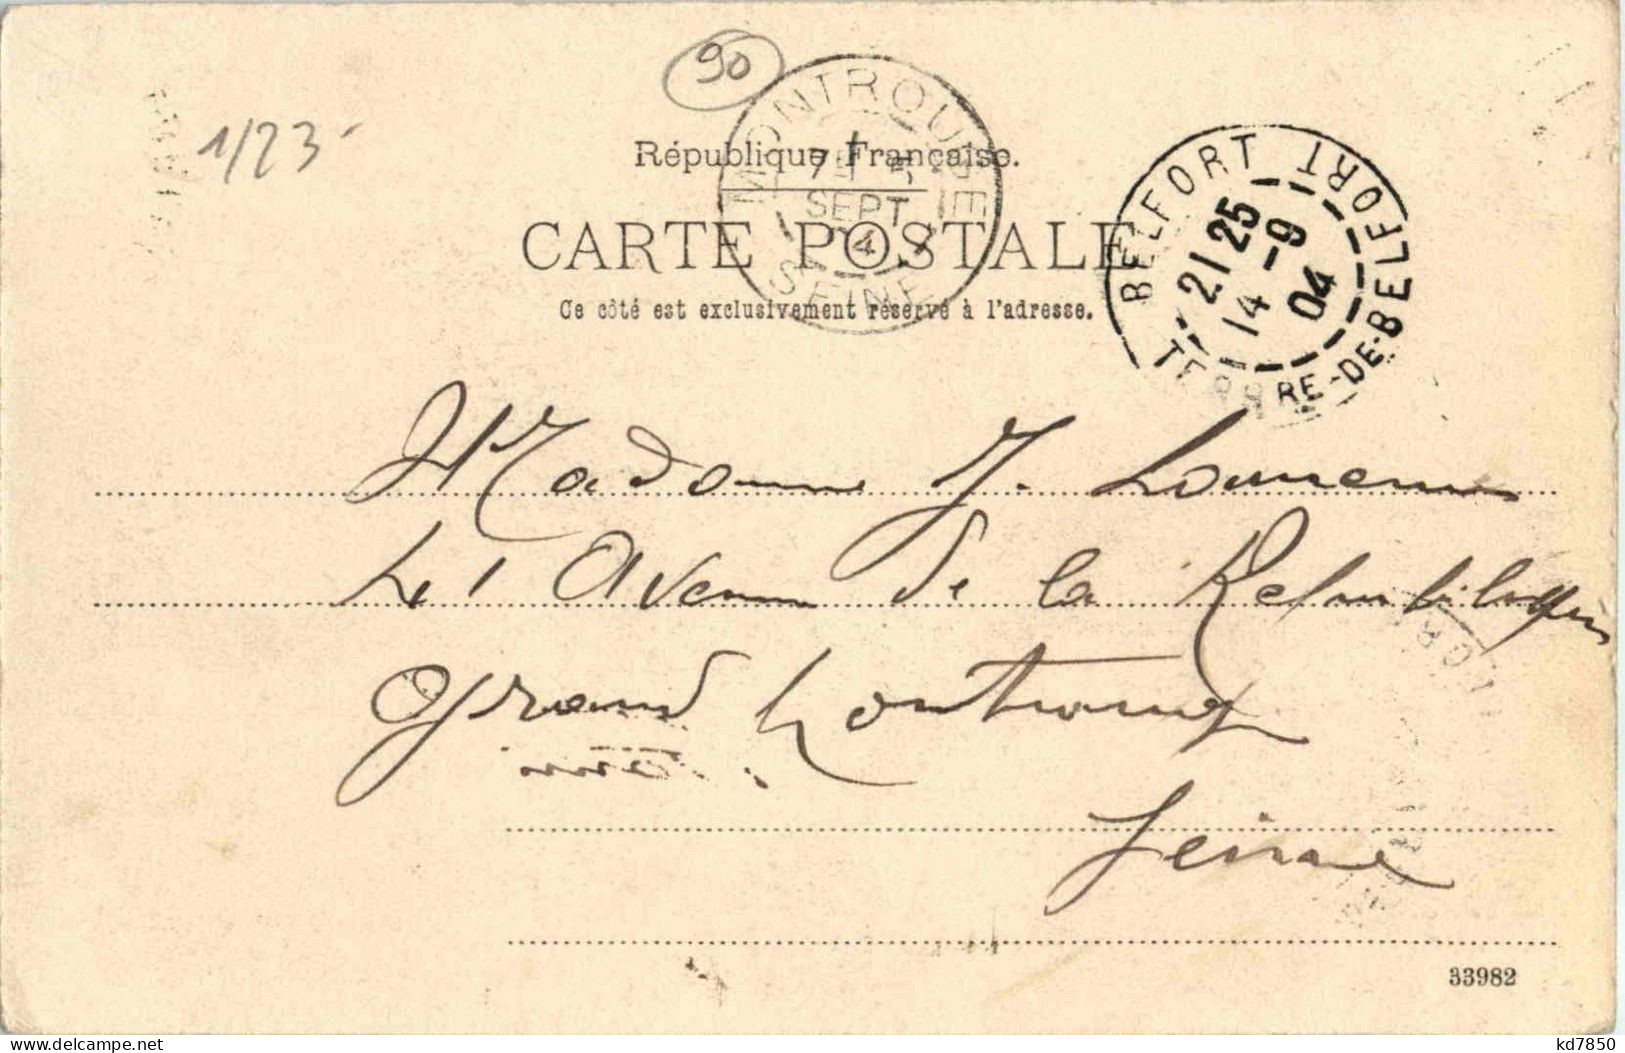 90
1/23-
MONTROUGE
7 E
SEPT
04
SEINE
République Française.
CARTE POSTALE
Ce côté est exclusivement réservé à l'adresse.
BELFORT BELFORT
21 25
14 -9
04
TERRE-DE-BELFORT
Madame J.
41 Avenue de la République
Grand Montrouge
Seine
33982
kd7850